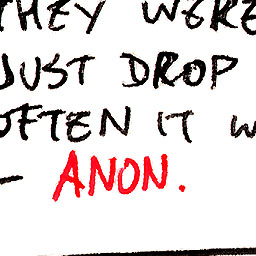 THEY WERE
JUST DROP
OFTEN IT W
- ANON.